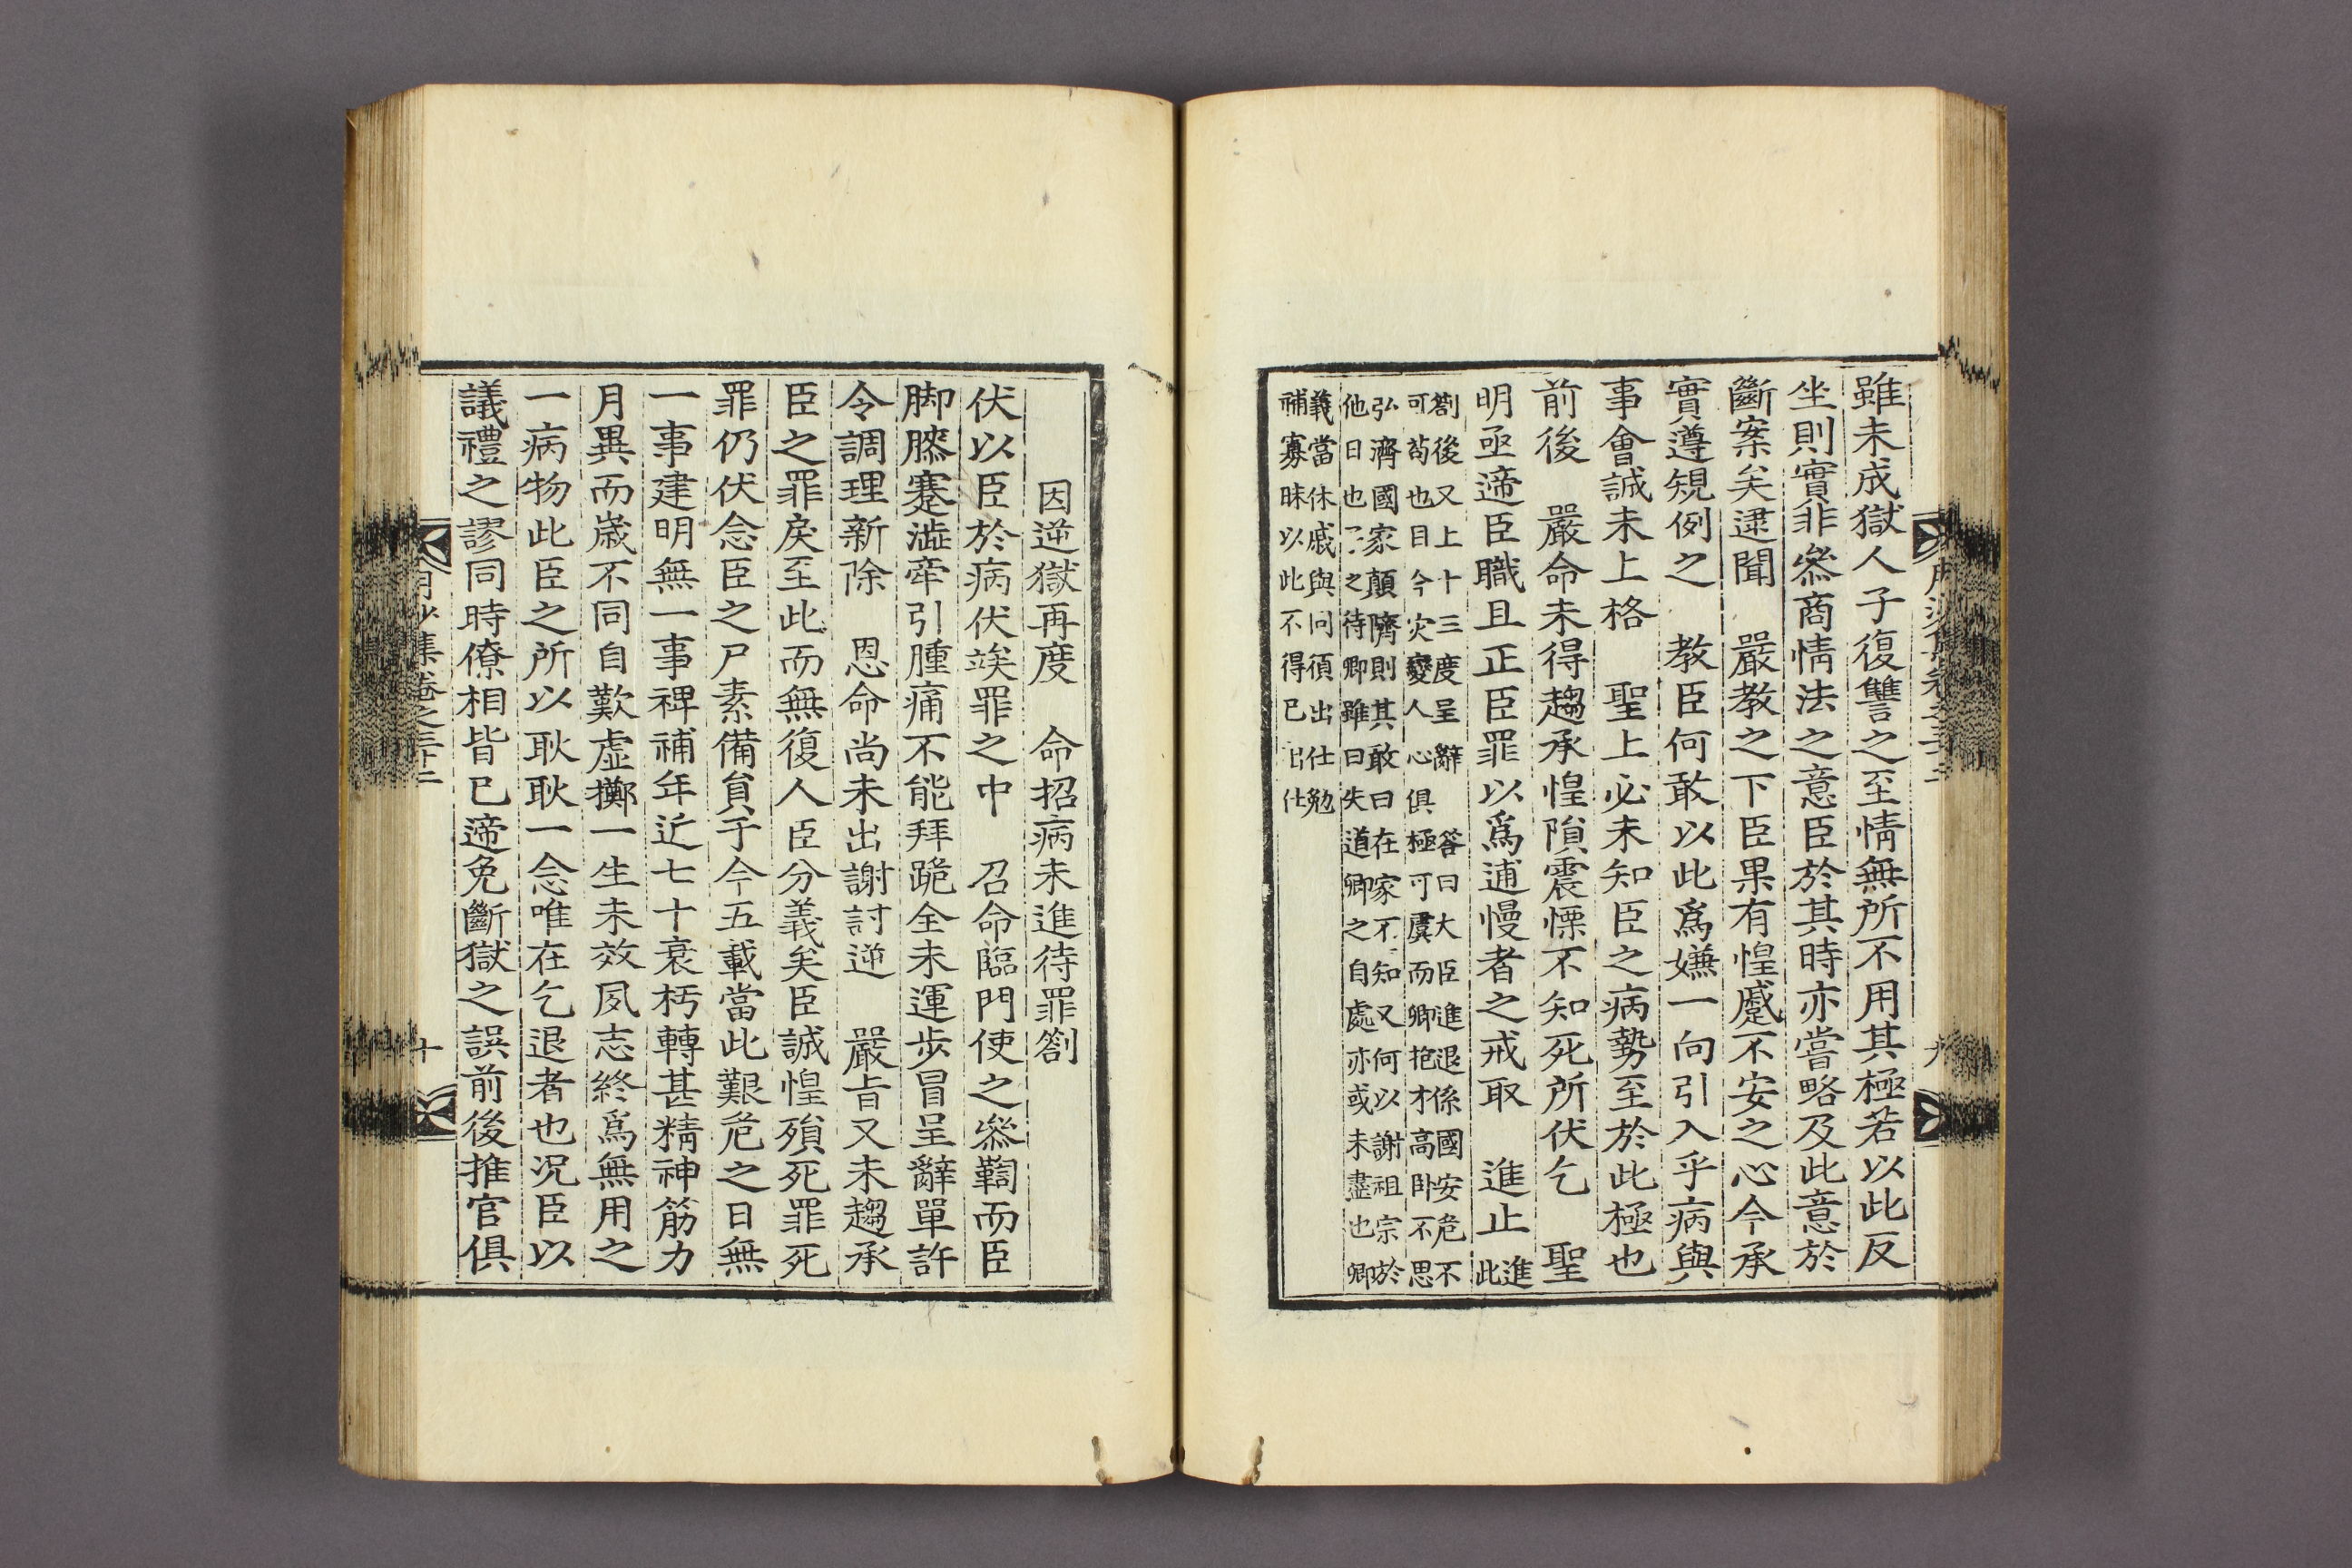 雖未成獄人子復讐之至情無所不用其極若以此反
坐則實非叅商情法之意臣於其時亦嘗略及此意於
斷案矣逮聞　嚴教之下臣果有惶蹙不安之心今承
實遵規例之　教臣何敢以此爲嫌一向引入乎病與
事會誠未上格　聖上必未知臣之病勢至於此極也
前後　嚴命未得趨承惶隕震慄不知死所伏乞　聖
明亟遞臣職且正臣罪以爲逋慢者之戒取　進止
進
此
劄後又上十三度呈辭　答曰大臣進退係國安危不
可苟也目今灾變人心俱極可虞而卿抱才高卧不思
弘濟國家顛隮則其敢曰在家不知又何以謝祖宗於
他日也予之待卿雖曰失道卿之自處亦或未盡也卿
義當休戚與同須出仕勉
補寡昧以此不得已出仕
因逆獄再度　命招病未進待罪劄
伏以臣於病伏竢罪之中　召命臨門使之叅鞫而臣
脚膝蹇澁牽引腫痛不能拜跪全未運步冒呈辭單許
令調理新除　恩命尚未出謝討逆　嚴旨又未趨承
臣之罪戾至此而無復人臣分義矣臣誠惶殞死罪死
罪仍伏念臣之尸素備貟于今五載當此艱危之日無
一事建明無一事裨補年近七十衰朽轉甚精神筋力
月異而歲不同自歎虛擲一生未效夙志終爲無用之
一病物此臣之所以耿耿一念唯在乞退者也况臣以
議禮之謬同時僚相皆已遞免斷獄之誤前後推官俱
集卷之三十二
十